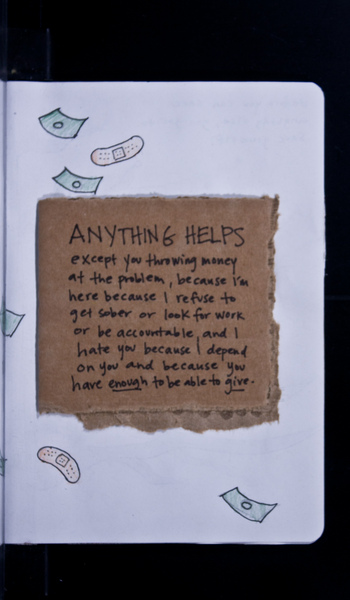 ANYTHING HELPS
except you throwing money
at the problem, because i'm
here because I refuse to
get sober or look for work
or be accountable, and I
hate you because I depend
on you and because you
have enough to be able to give.